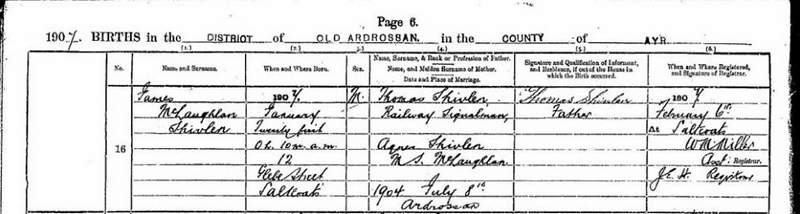 Page 6.
1907. BIRTHS in the DISTRICT of OLD ARDROSSAN. in the COUNTY of AYR.
(1.) (2.) (3.) (4.) (5.) (6.)
No.
Name and Surname.
When and Where Born.
Sex.
Name, Surname, & Rank or Profession of Father.
Name, and Maiden Surname of Mother.
Date and Place of Marriage.
Signature and Qualification of Informant,
and Residence, if out of the House in
which the Birth occurred.
When and Where Registered,
and Signature of Registrar.
16
James
McLaughlan
Shivlen
1907,
January
Twenty first
0h. 10m. a.m.
12
Glebe Street
Saltcoats
M.
Thomas Shivlen,
Railway Signalman,
Agnes Shivlen
M.S. McLaughlan
1904 July 8th
Ardrossan
Thomas Shivlen
Father
1907
February 6th
At Saltcoats
Wm Miller
Asst. Registrar.